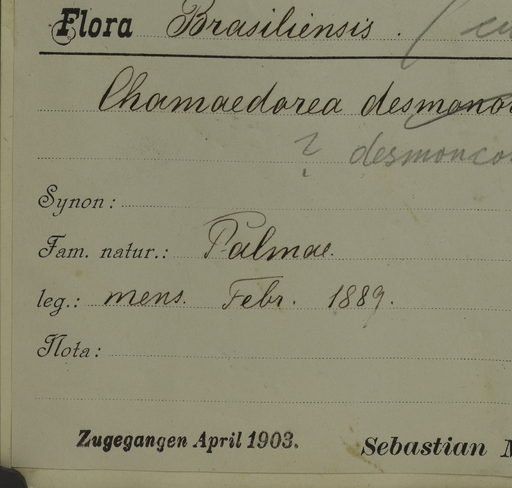 Flora Brasiliensis.
Chamaedorea
?
Synon:
Fam. natur.: Palmae.
leg.: mens. Febr. 1889.
Nota:
Zugegangen April 1903. Sebastian